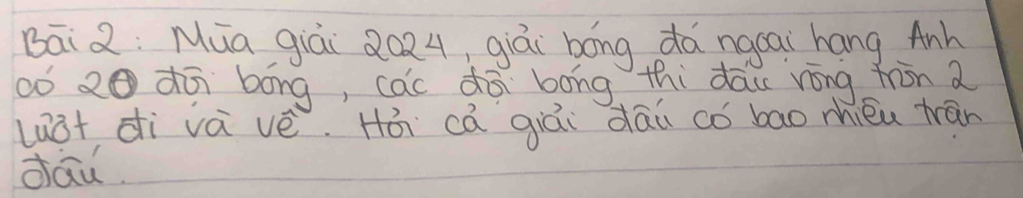 Bài 2: Mùa giải 2024, giải bóng đá ngoại hạng Anh
có 20 đội bóng, các đội bóng thi đấu vòng tròn 2
lượt đi và về. Hỏi cả giải đấu có bao nhiêu trận
đấu.